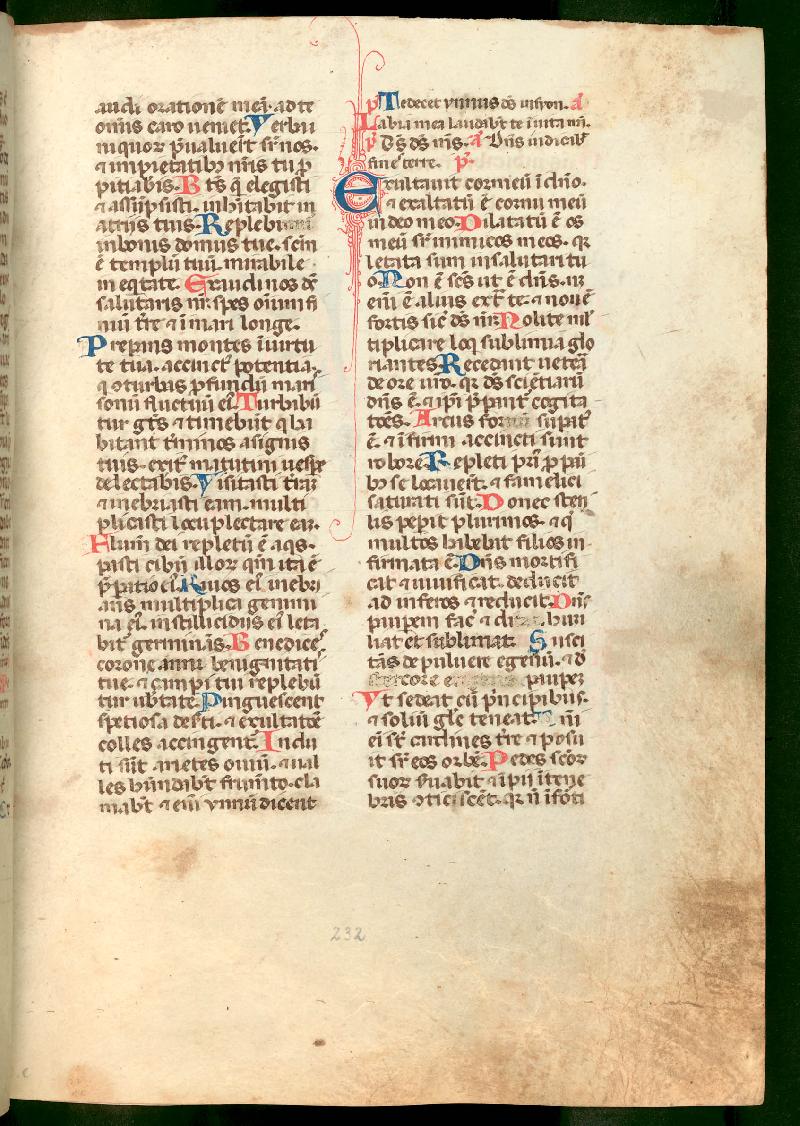 audi orationē meā· ad te
omīs caro veniet. Verba
iniquoꝝ p̄ualuer̄t sr̄ nos·
⁊ impietatibꝫ nr̄is tu ꝓ
pitiaƀis. Bt̄s q̄ elegisti
⁊ assūpsisti· inhitabit in
atrijs tuis. Replebimur
in bonis domus tue· sc̄m
ē templū tuū· mirabile
in eq̄tate. Exaudi nos d̄s
salutaris nr̄· spes oīum fi
niū tr̄e ⁊ ī mari longe.
Preparās montes ī uirtu
te tua· accinctꝰ potentia·
q̄ ꝯturbas ꝓfundū mari
sonū fluctuū eiꝰ. Turbabū
tur gt̄es ⁊ timebūt q̄ ha
bitant t̄minos a signis
tuis· exitꝰ matutini ⁊ uespe
delectabis. Visitasti t̄ram
⁊ inebriasti eam· multi
plicasti locupletare eā.
Flumē dei repletū ē aqs·
pasti cibū illoꝝ· qm̄ ita ē
p̄patio eiꝰ. Riuos eiꝰ inebri
ans multiplica genimi
na eiꝰ· in stillicidiis eiꝰ leta
bit̄ germinās. Benedices
corone anni benignitatis
tue· ⁊ campi tui replebū
tur ubtate. Pinguescent
spetiosa deserti· ⁊ exultatōe
colles accingent̄. Indu
ti sūt arietes ouiū· ⁊ ual
les hūndab̄t frum̄to· cla
mab̄t ⁊ em̄ ymnū dicent
p̄ Te decet ymnus d̄s in syon. a
Labia mea laudab̄t te in uita m̄.
p̄ D̄s d̄s m̄s. a Dn̄s iudicab̄
fines terre. p̄
Exultauit cor meū ī dn̄o·
⁊ exaltatū ē cornu meū
in deo meo. Dilatatū ē os
meū sr̄ inimicos meos· qꝛ
letata sum in salutari tu
o. Non ē sc̄s ut ē dn̄s· nec
em̄ ē alius ext̄ te· ⁊ non ē
fortis sic̄ d̄s nr̄. Nolite ml̄
tiplicare loq̄ sublimia glo
riantes. Recedant uetera
de ore uro· qꝛ d̄s scientiarū
dn̄s ē· ⁊ ip̄i p̄pant̄ cogita
tōes. Arcus fortiū supat̄
ē· ⁊ īfirmi accincti sunt
robore. Repleti prꝰ ꝓ pani
bꝫ se locauer̄t· ⁊ famelici
saturati sūt. Donec steri
lis pepit plurimos· ⁊ q̄
multos habebat filios in
firmata ē. Dn̄s mortifi
cat ⁊ uiuificat· deducit
ad inferos ⁊ reducit. Dn̄s
paupem fac̄ ⁊ ditat· humi
liat et subleuat. Susci
tās de puluere egenū· ⁊ d̄
stercore e paupeꝫ
Vt sedeat cū p̄ncipibus·
⁊ soliū gl̄e teneat.
ei sr̄ cardines tr̄e ⁊ posu
it sr̄ eos orbē. Pedes sc̄oꝝ
suoꝝ suabit ⁊ īpii ī tene
bris ꝯticescēt· qꝛ n̄ ī forti
232